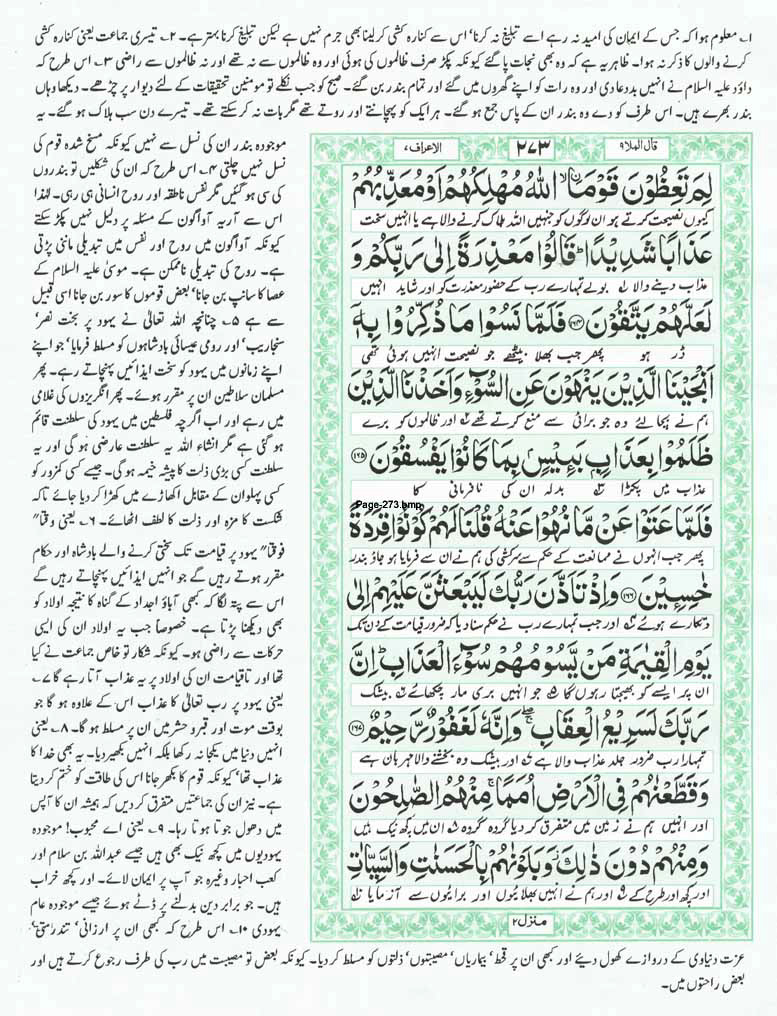 ۱۔ معلوم ہوا کہ جس کے ایمان کی امید نہ رہے اسے تبلیغ نہ کرنا' اس سے کنارہ کشی کر لینا بھی جرم نہیں ہے لیکن تبلیغ کرنا بہتر ہے۔ ۲۔ تیسری جماعت یعنی کنارہ کشی
کرنے والوں کا ذکر نہ ہوا۔ ظاہر یہ ہے کہ وہ بھی نجات پا گئے کیونکہ پکڑ صرف ظالموں کی ہوئی اور وہ ظالموں سے نہ تھے اور نہ ظالموں سے راضی ۳۔ اس طرح کہ
داؤد علیہ السلام نے انہیں بددعا دی اور وہ رات کو اپنے گھروں میں گئے اور تمام بندر بن گئے۔ صبح کو جب نکلے تو مومنین تحقیقات کے لئے دیوار پر چڑھے۔ دیکھا وہاں
بندر بھرے ہیں۔ اس طرف کو دے وہ بندر ان کے پاس جمع ہو گئے۔ ہر ایک کو پہچانتے اور روتے تھے مگر بات نہ کر سکتے تھے۔ تیسرے دن سب ہلاک ہو گئے۔ یہ
قال الملا۹
۲۷۳
الاعراف۷
لِمَ تَعِظُوْنَ قَوْمَاۨ ۙ اللّٰهُ مُهْلِكُهُمْ اَوْ مُعَذِّبُهُمْ
کیوں نصیحت کرتے ہو ان لوگوں کو جنہیں اللہ ہلاک کرنے والا ہے یا انہیں سخت
عَذَابًا شَدِيْدًا ؕ قَالُوْا مَعْذِرَةً اِلٰى رَبِّكُمْ وَ
عذاب دینے والا لے بولے تمہارے رب کے حضور معذرت کو اور شاید انہیں
لَعَلَّهُمْ يَتَّقُوْنَ ﴿۱۶۴﴾ فَلَمَّا نَسُوْا مَا ذُكِّرُوْا بِهٖۤ
ڈر ہو پھر جب بھلا بیٹھے جو نصیحت انہیں ہوئی تھی
اَنْجَيْنَا الَّذِيْنَ يَنْهَوْنَ عَنِ السُّوْٓءِ وَاَخَذْنَا الَّذِيْنَ
ہم نے بچا لئے وہ جو برائی سے منع کرتے تھے اور ظالموں کو برے
ظَلَمُوْا بِعَذَابٍۭ بَىِٕيْسٍۭ بِمَا كَانُوْا يَفْسُقُوْنَ ﴿۱۶۵﴾
عذاب میں پکڑا بدلہ ان کی نافرمانی کا
Page-273.bmp
فَلَمَّا عَتَوْا عَنْ مَّا نُهُوْا عَنْهُ قُلْنَا لَهُمْ كُوْنُوْا قِرَدَةً
پھر جب انہوں نے ممانعت کے حکم سے سرکشی کی ہم نے ان سے فرمایا ہو جاؤ بندر
خٰسِـِٕيْنَ ﴿۱۶۶﴾ وَاِذْ تَاَذَّنَ رَبُّكَ لَيَبْعَثَنَّ عَلَيْهِمْ اِلٰى
دھتکارے ہوئے اور جب تمہارے رب نے حکم سنا دیا کہ ضرور قیامت کے دن تک
يَوْمِ الْقِيٰمَةِ مَنْ يَّسُوْمُهُمْ سُوْٓءَ الْعَذَابِ ؕ اِنَّ
ان پر ایسے کو بھیجتا رہوں گا جو انہیں بری مار چکھائے بیشک
رَبَّكَ لَسَرِيْعُ الْعِقَابِ ۖۚ وَاِنَّهٗ لَغَفُوْرٌ رَّحِيْمٌ ﴿۱۶۷﴾
تمہارا رب ضرور جلد عذاب والا ہے اور بیشک وہ بخشنے والا مہربان ہے
وَقَطَّعْنٰهُمْ فِى الْاَرْضِ اُمَمًا ۚ مِنْهُمُ الصّٰلِحُوْنَ
اور انہیں ہم نے زمین میں متفرق کر دیا گروہ گروہ ان میں کچھ نیک ہیں
وَمِنْهُمْ دُوْنَ ذٰلِكَ ۫ وَبَلَوْنٰهُمْ بِالْحَسَنٰتِ وَالسَّيِّاٰتِ
اور کچھ اور طرح کے اور ہم نے انہیں بھلائیوں اور برائیوں سے آزمایا
منزل۲
موجودہ بندر ان کی نسل سے نہیں کیونکہ مسخ شدہ قوم کی
نسل نہیں چلتی ۴۔ اس طرح کہ ان کی شکلیں تو بندروں
کی سی ہو گئیں مگر نفس ناطقہ اور روح انسانی ہی رہی۔ لہٰذا
اس سے آریہ آواگون کے مسئلہ پر دلیل نہیں پکڑ سکتے
کیونکہ آواگون میں روح اور نفس میں تبدیلی ماننی پڑتی
ہے۔ روح کی تبدیلی ناممکن ہے۔ موسیٰ علیہ السلام کے
عصا کا سانپ بن جانا' بعض قوموں کا سور بن جانا اسی قبیل
سے ہے ۵۔ چنانچہ اللہ تعالیٰ نے یہود پر بخت نصر'
سنجاریب' اور رومی عیسائی بادشاہوں کو مسلط فرمایا' جو اپنے
اپنے زمانوں میں یہود کو سخت ایذائیں پہنچاتے رہے۔ پھر
مسلمان سلاطین ان پر مقرر ہوئے۔ پھر انگریزوں کی غلامی
میں رہے اور اب اگرچہ فلسطین میں یہود کی سلطنت قائم
ہو گئی ہے مگر انشاء اللہ یہ سلطنت عارضی ہو گی اور یہ
سلطنت کسی بڑی ذلت کا پیشہ خیمہ ہو گی۔ جیسے کسی کمزور کو
کسی پہلوان کے مقابل اکھاڑے میں کھڑا کر دیا جائے تاکہ
شکست کا مزہ اور ذلت کا لطف اٹھائے۔ ۶۔ یعنی وقتا"
فوقتا" یہود پر قیامت تک سختی کرنے والے بادشاہ اور حکام
مقرر ہوتے رہیں گے جو انہیں ایذائیں پہنچاتے رہیں گے
اس سے پتہ لگا کہ کبھی آباؤ اجداد کے گناہ کا نتیجہ اولاد کو
بھی دیکھنا پڑتا ہے۔ خصوصاً جب یہ اولاد ان کی ایسی
حرکات سے راضی ہو۔ کیونکہ شکار تو خاص جماعت نے کیا
تھا اور تاقیامت ان کی اولاد پر یہ عذاب آتا رہے گا ۷۔
یعنی یہود پر رب تعالیٰ کا عذاب اس کے علاوہ ہو گا جو
بوقت موت اور قبر و حشر میں ان پر مسلط ہو گا۔ ۸۔ یعنی
انہیں دنیا میں یکجا نہ رکھا بلکہ انہیں بکھیر دیا۔ یہ بھی خدا کا
عذاب تھا' کیونکہ قوم کا بکھر جانا اس کی طاقت کو ختم کر دیتا
ہے۔ نیز ان کی جماعتیں متفرق کر دیں کہ ہمیشہ ان کا آپس
میں دھول جوتا ہوتا رہا۔ ۹۔ یعنی اے محبوب! موجودہ
یہودیوں میں کچھ نیک بھی ہیں جیسے عبداللہ بن سلام اور
کعب احبار وغیرہ جو آپ پر ایمان لائے۔ اور کچھ خراب
ہیں۔ جو برابر دین بدلنے پر ڈٹے ہوئے جیسے موجودہ عام
یہودی ۱۰۔ اس طرح کہ کبھی ان پر ارزانی' تندرستی'
عزت دنیاوی کے دروازے کھول دیئے اور کبھی ان پر قحط' بیماریاں' مصیبتوں' ذلتوں کو مسلط کر دیا۔ کیونکہ بعض تو مصیبت میں رب کی طرف رجوع کرتے ہیں اور
بعض راحتوں میں۔